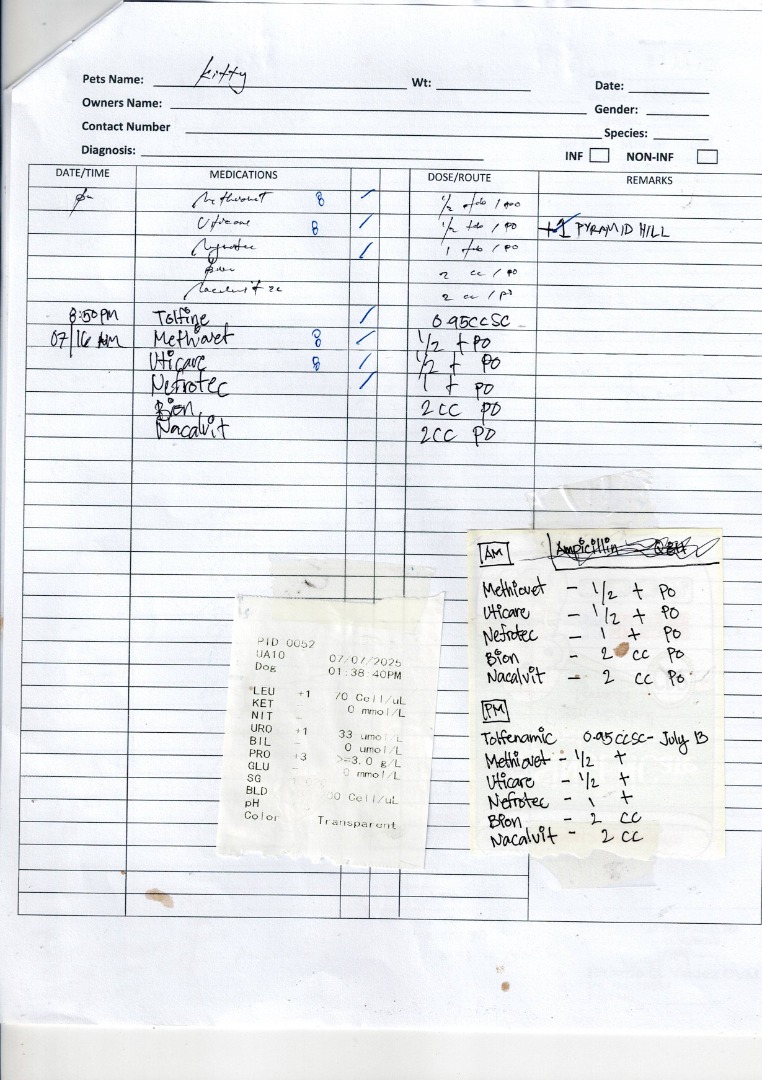 Pets Name: kitty Wt: Date:
Owners Name: Gender:
Contact Number Species:
Diagnosis: INF NON-INF
DATE/TIME MEDICATIONS DOSE/ROUTE REMARKS
8 / 1/2 tab / po
Uticare 8 / 1/2 tab / po +1 PYRAMID HILL
/ 1 tab / po
2 cc / po
2 cc / po
8:50PM Tolfine / 0.95CCSC
07/16 AM Methiovet 8 / 1/2 t PO
Uticare 8 / 1/2 t PO
Nefrotec / 1 t PO
Bion 2CC PO
Nacalvit 2CC PO
AM Ampicillin
Methiovet - 1/2 t PO
Uticare - 1/2 t PO
Nefrotec - 1 t PO
Bion - 2 CC PO
Nacalvit - 2 CC PO
PM
Tolfenamic 0.95CCSC - July 13
Methiovet - 1/2 t
Uticare - 1/2 t
Nefrotec - 1 t
Bion - 2 CC
Nacalvit - 2 CC
PID 0052
UA10 07/07/2025
Dog 01:38:40PM
*LEU +1 70 Cell/uL
KET - 0 mmol/L
NIT -
URO +1 33 umol/L
BIL - 0 umol/L
PRO +3 >=3.0 g/L
GLU - 0 mmol/L
SG
BLD Cell/uL
pH
Color Transparent